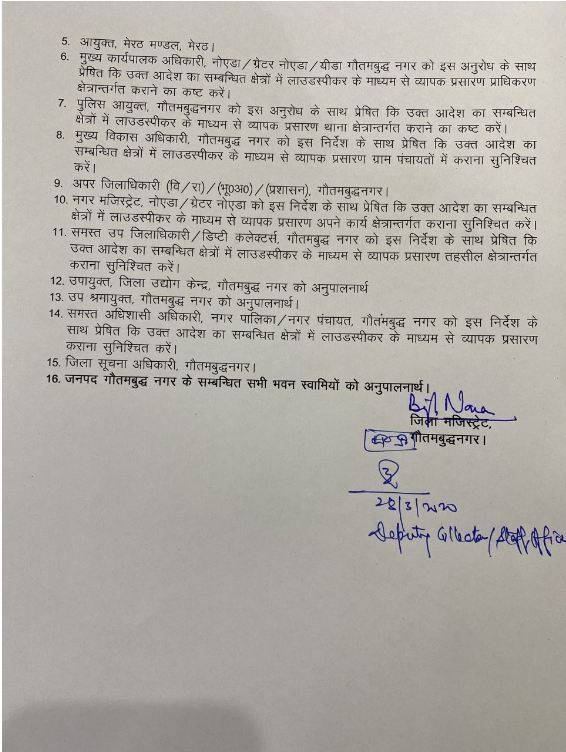 5. आयुक्त, मेरठ मण्डल, मेरठ।
6. मुख्य कार्यपालक अधिकारी, नोएडा/ग्रेटर नोएडा/यीडा गौतमबुद्ध नगर को इस अनुरोध के साथ
प्रेषित कि उक्त आदेश का सम्बन्धित क्षेत्रों में लाउडस्पीकर के माध्यम से व्यापक प्रसारण प्राधिकरण
क्षेत्रान्तर्गत कराने का कष्ट करें।
7. पुलिस आयुक्त, गौतमबुद्धनगर को इस अनुरोध के साथ प्रेषित कि उक्त आदेश का सम्बन्धित
क्षेत्रों में लाउडस्पीकर के माध्यम से व्यापक प्रसारण थाना क्षेत्रान्तर्गत कराने का कष्ट करें।
8. मुख्य विकास अधिकारी, गौतमबुद्ध नगर को इस निर्देश के साथ प्रेषित कि उक्त आदेश का
सम्बन्धित क्षेत्रों में लाउडस्पीकर के माध्यम से व्यापक प्रसारण ग्राम पंचायतों में कराना सुनिश्चित
करें।
9. अपर जिलाधिकारी (वि/रा)/(भू0अ0)/(प्रशासन), गौतमबुद्धनगर।
10. नगर मजिस्ट्रेट, नोएडा/ग्रेटर नोएडा को इस निर्देश के साथ प्रेषित कि उक्त आदेश का सम्बन्धित
क्षेत्रों में लाउडस्पीकर के माध्यम से व्यापक प्रसारण अपने कार्य क्षेत्रान्तर्गत कराना सुनिश्चित करें।
11. समस्त उप जिलाधिकारी/डिप्टी कलेक्टर्स, गौतमबुद्ध नगर को इस निर्देश के साथ प्रेषित कि
उक्त आदेश का सम्बन्धित क्षेत्रों में लाउडस्पीकर के माध्यम से व्यापक प्रसारण तहसील क्षेत्रान्तर्गत
कराना सुनिश्चित करें।
12. उपायुक्त, जिला उद्योग केन्द्र, गौतमबुद्ध नगर को अनुपालनार्थ
13. उप श्रमायुक्त, गौतमबुद्ध नगर को अनुपालनार्थ।
14. समस्त अधिशासी अधिकारी, नगर पालिका/नगर पंचायत, गौतमबुद्ध नगर को इस निर्देश के
साथ प्रेषित कि उक्त आदेश का सम्बन्धित क्षेत्रों में लाउडस्पीकर के माध्यम से व्यापक प्रसारण
कराना सुनिश्चित करें।
15. जिला सूचना अधिकारी, गौतमबुद्धनगर।
16. जनपद गौतमबुद्ध नगर के सम्बन्धित सभी भवन स्वामियों को अनुपालनार्थ।
जिला मजिस्ट्रेट,
गौतमबुद्धनगर।
28/3/2020
Deputy Collector/Staff Office